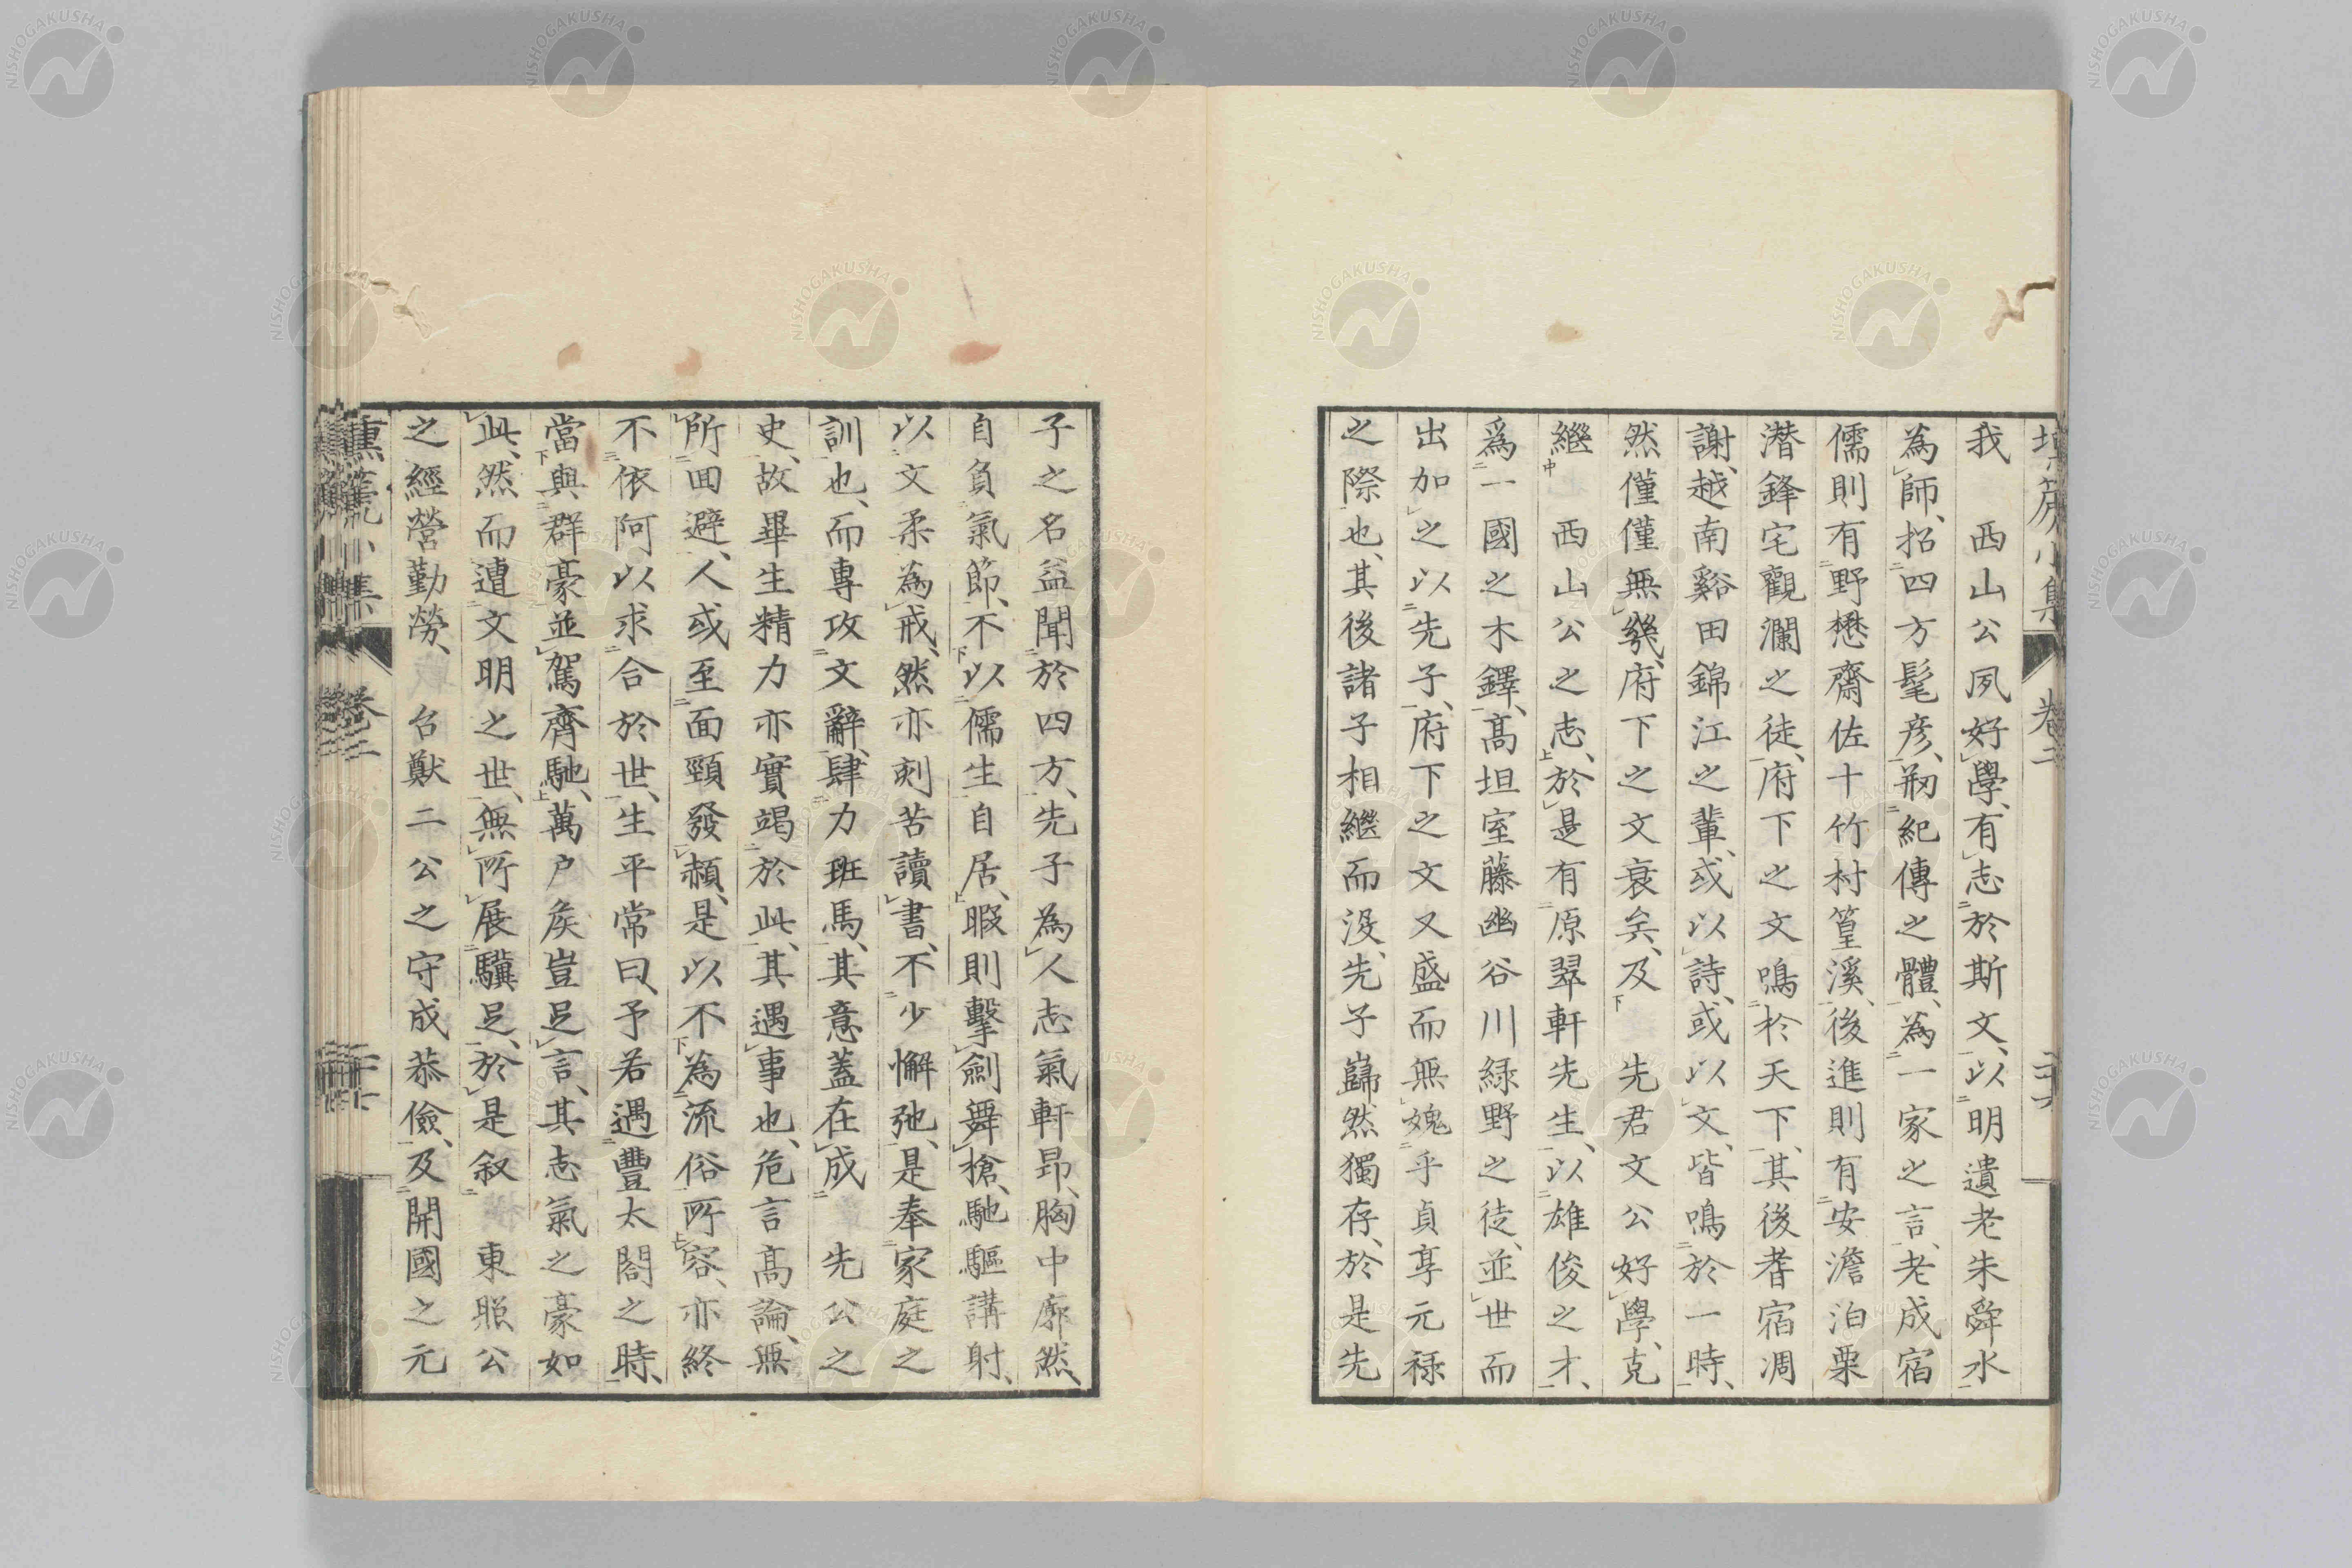 我　西山公夙好學、有志於斯文、以明遺老朱舜水
為師、招四方髦彦、剏紀傳之體、為一家之言、老成宿
儒則有野懋齋佐十竹村篁溪、後進則有安澹泊栗
潛鋒宅觀瀾之徒、府下之文鳴於天下、其後耆宿凋
謝、越南谿田錦江之輩、或以詩、或以文、皆鳴於一時、
然僅僅無幾、府下之文衰矣、及　先君文公好學、克
繼　西山公之志、於是有原翠軒先生、以雄俊之才、
爲一國之木鐸、高坦室藤幽谷川緑野之徒、並世而
出加之以先子、府下之文又盛而無媿乎貞享元禄
之際也、其後諸子相繼而没、先子巋然獨存、於是先
子之名益聞於四方、先子為人志氣軒昂、胸中廓然、
自負氣節、不以儒生自居、暇則擊劍舞槍、馳驅講射、
以文柔為戒、然亦刻苦讀書、不少懈弛、是奉家庭之
訓也、而專攻文辭、肆力班馬、其意蓋在成　先公之
史、故畢生精力亦實竭於此、其遇事也、危言高論、無
所回避、人或至面頸發赬、是以不為流俗所容、亦終
不依阿以求合於世、生平常曰、予若遇豐太閤之時、
當與群豪並駕齊馳、萬户矦豈足言、其志氣之豪如
此、然而遭文明之世、無所展驥足、於是叙　東照公
之經營勤勞、　台猷二公之守成恭儉、及開國之元
壎箎小集　卷二